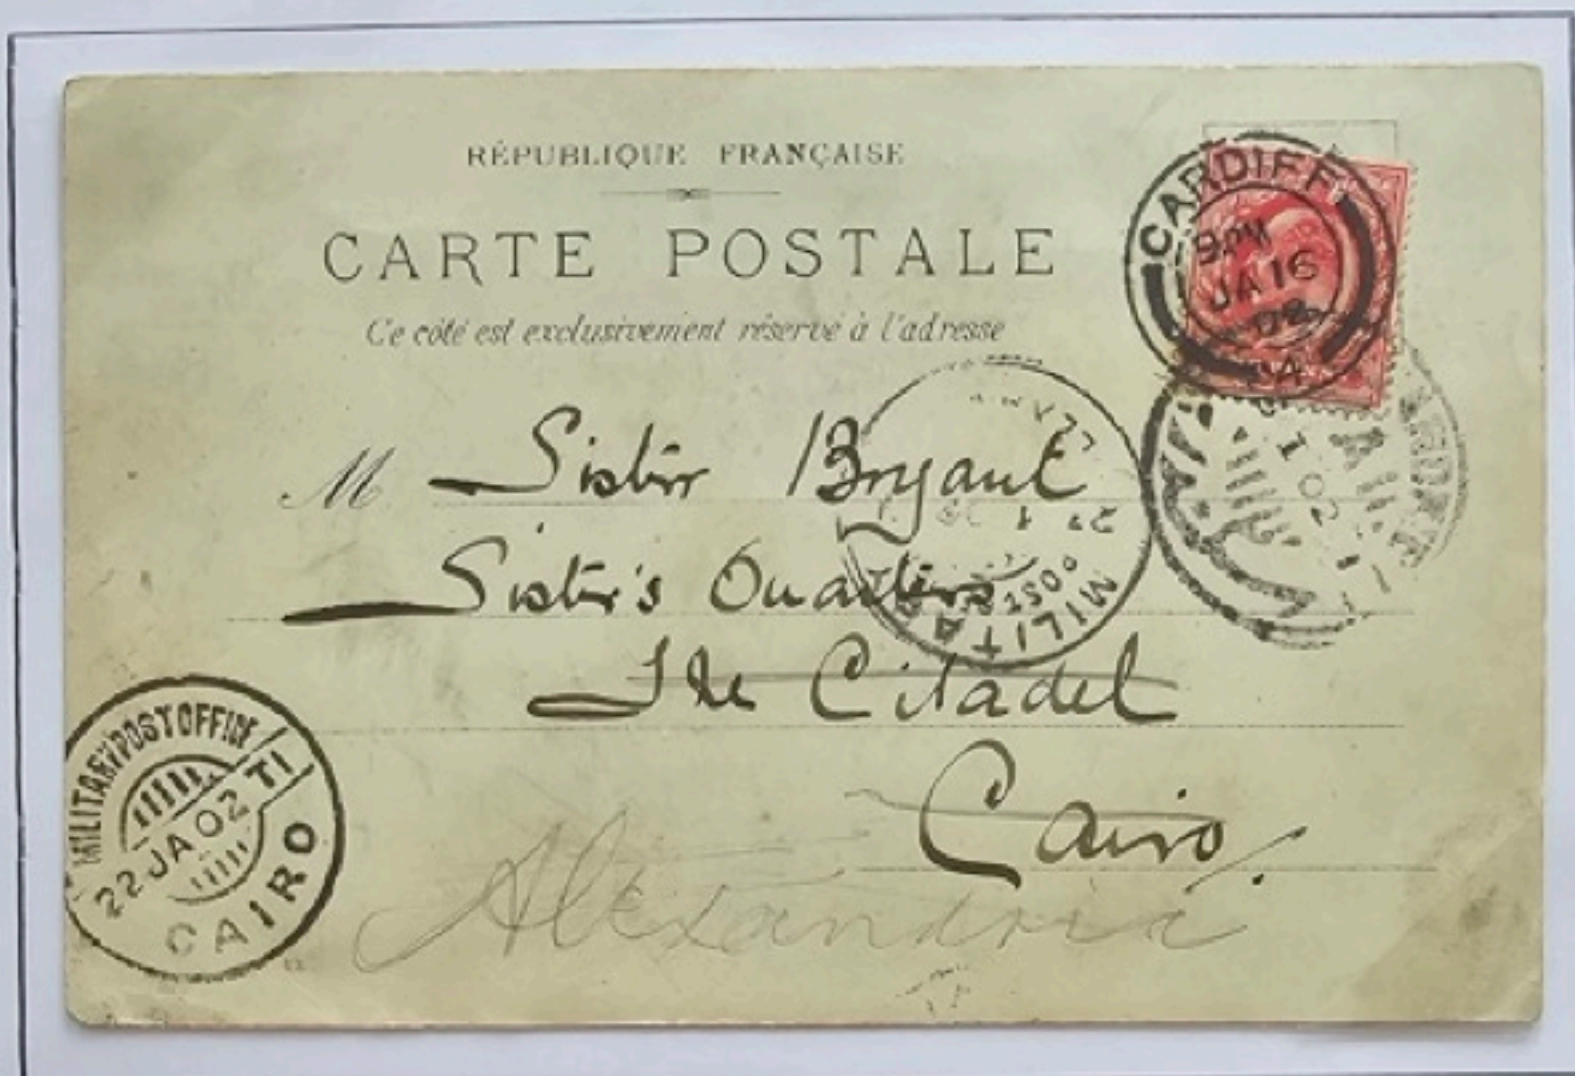 RÉPUBLIQUE FRANÇAISE
CARTE POSTALE
Ce côté est exclusivement réservé à l'adresse
CARDIFF
9 PM
JA 16
02
M Sister Bryant
Sister's Quarters
The Citadel
Cairo
Alexandria
MILITARY POST OFFICE
TI
22 JA 02
CAIRO
MILITARY
POSTE
1 02